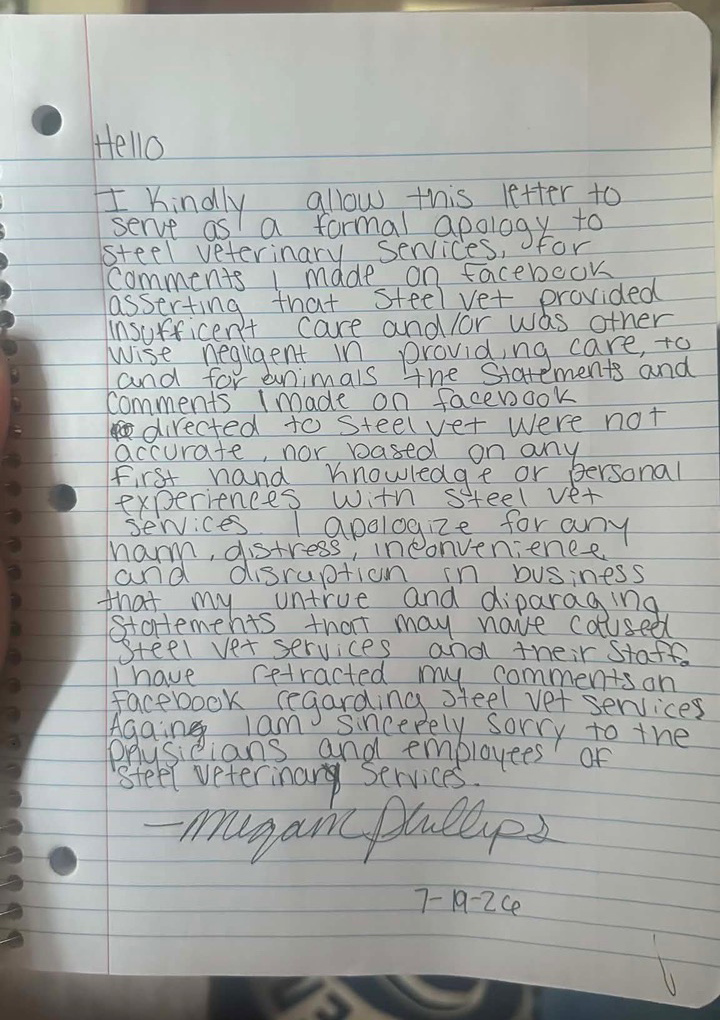 Hello
I Kindly allow this letter to
serve as a formal apology to
Steel veterinary Services, for
Comments I made on facebook
asserting that Steel vet provided
insufficent care and/or was other
wise negligent in providing care, to
and for animals the Statements and
Comments I made on facebook
directed to Steel vet were not
accurate, nor based on any
first hand knowledge or personal
experiences with Steel vet
services I apologize for any
harm, distress, inconvenience
and disruption in business
that my untrue and diparaging
Statements that may have caused
Steel vet services and their Staff.
I have retracted my comments on
facebook regarding Steel vet services
Again I am sincerely sorry to the
physicians and employees of
Steel veterinary Services.
-Megan Phillips
7-19-26